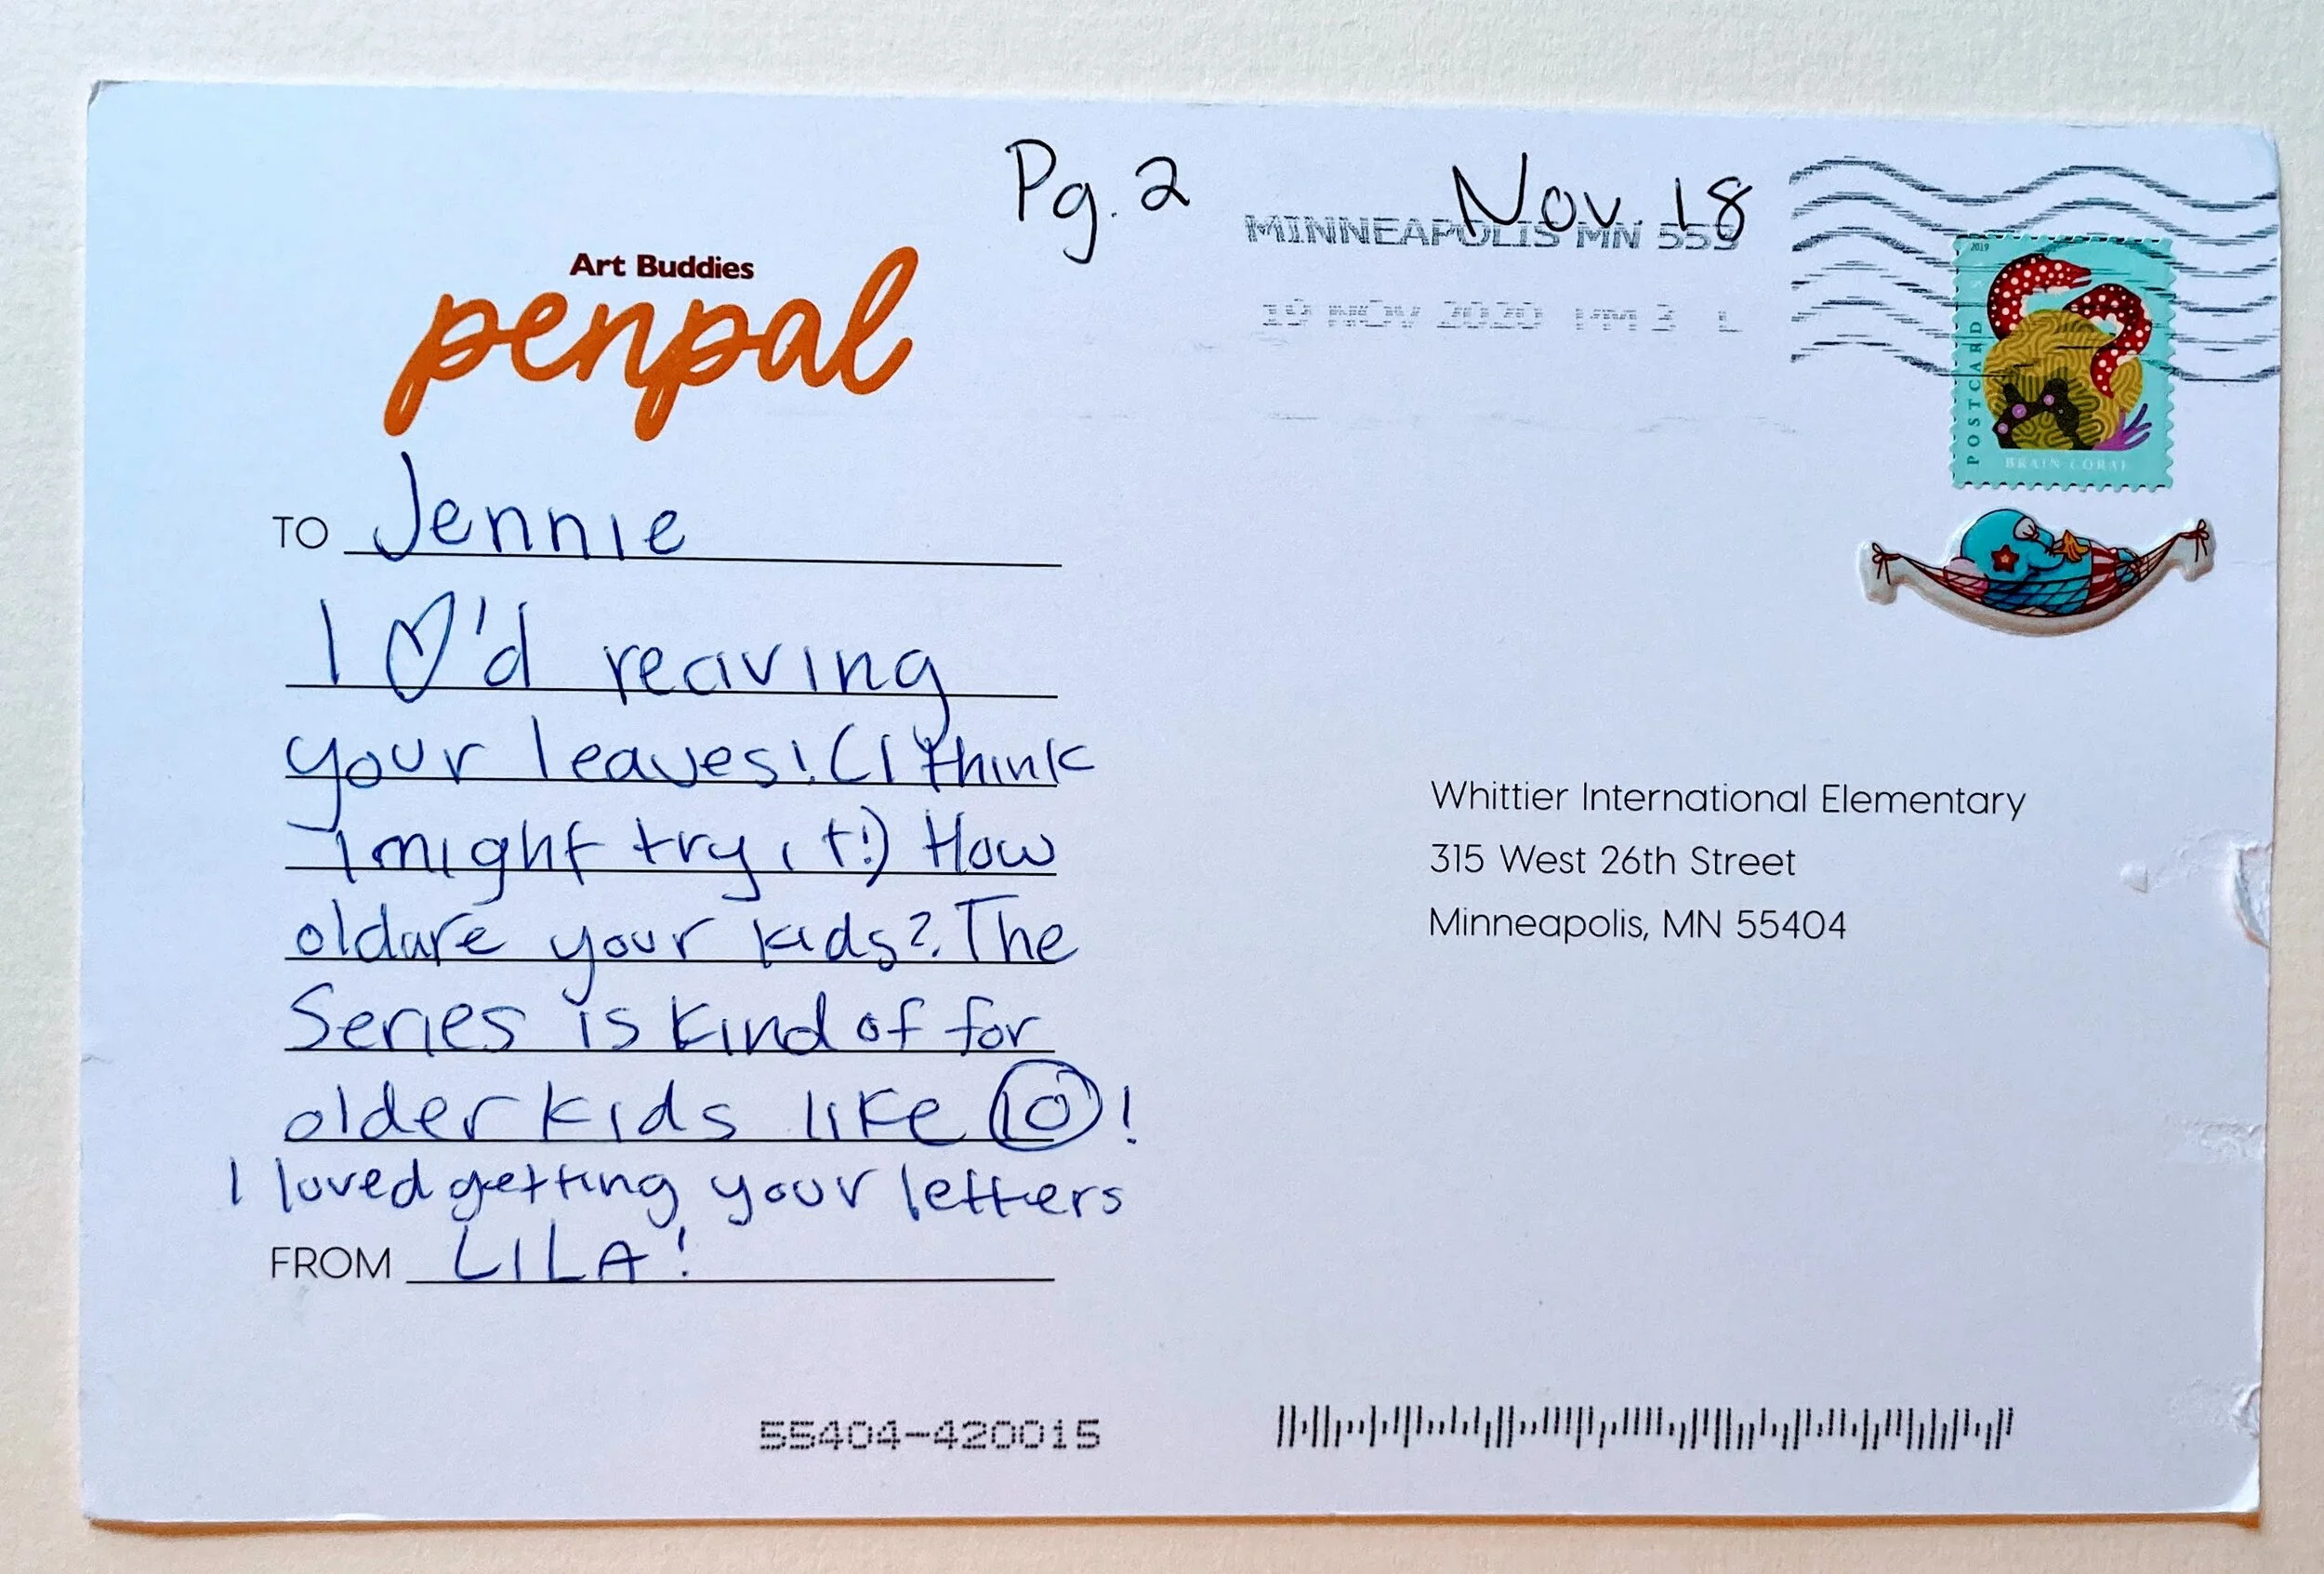 Pg. 2
Nov. 18
MINNEAPOLIS MN 553
19 NOV 2020 PM 3 L
Art Buddies
penpal
2019
POSTCARD
BRAIN CORAL
TO Jennie
I ♡'d reciving
your leaves! (I think
I might try it!) How
old are your kids? The
Series is kind of for
older kids like 10!
I loved getting your letters
FROM LILA!
Whittier International Elementary
315 West 26th Street
Minneapolis, MN 55404
55404-420015